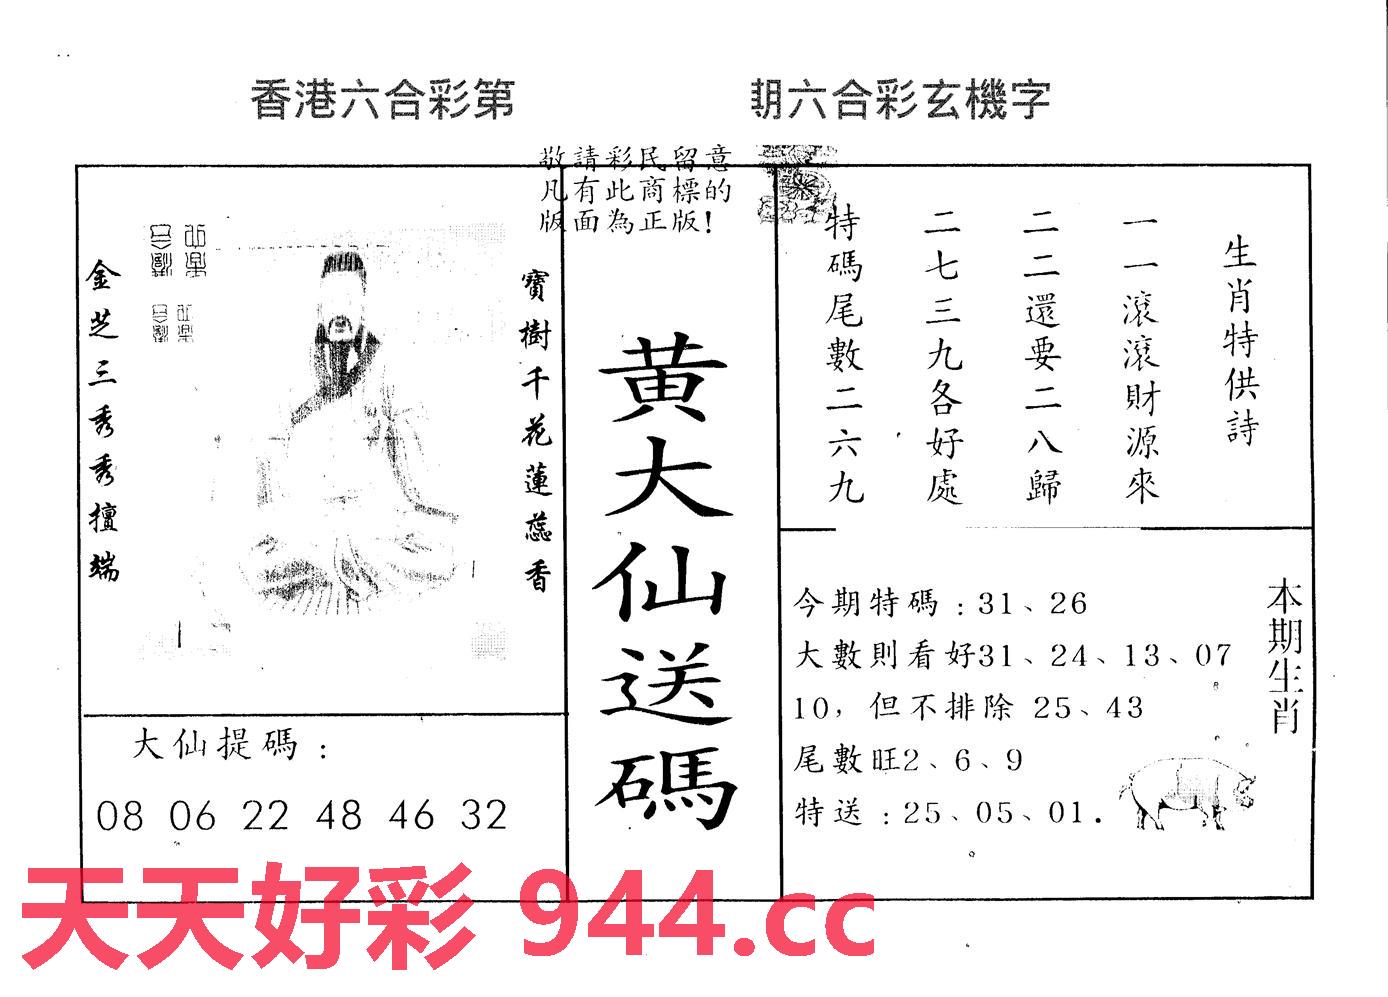 香港六合彩第 期六合彩玄機字
敬請彩民留意
凡有此商標的
版面為正版！
生肖特供詩
一一滾滾財源來
二二還要二八歸
二七三九各好處
特碼尾數二六九
寶樹千花蓮蕊香
金芝三秀秀擅端
黃大仙送碼
大仙提碼：
08 06 22 48 46 32
今期特碼：31、26
大數則看好31、24、13、07
10，但不排除 25、43
尾數旺2、6、9
特送：25、05、01.
本期生肖
天天好彩 944.cc